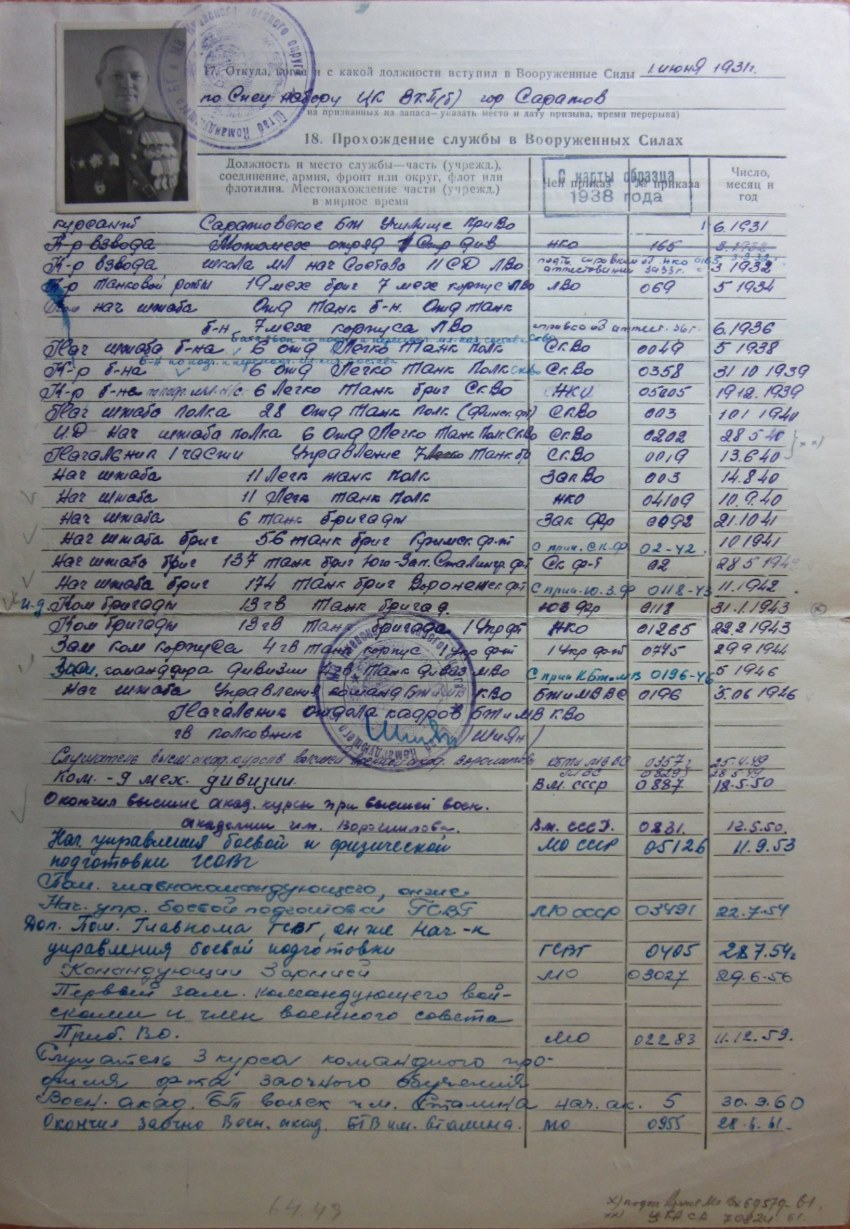 17. Откуда, когда и с какой должности вступил в Вооруженные Силы 1 июня 1931г.
по Спец набору ЦК ВКП(б) гор Саратов
на призванных из запаса—указать место и дату призыва, время перерыва)
18. Прохождение службы в Вооруженных Силах
Должность и место службы—часть (учрежд.), соединение, армия, фронт или округ, флот или флотилия. Местонахождение части (учрежд.) в мирное время
Чей приказ № приказа Число, месяц и год
С карты образца 1938 года
курсант Саратовское бт Училище ПриВо 1 6.1931
К-р взвода Мотомех отряд Стр див НКО 165
К-р взвода школа мл нач состава 11 СД ЛВо 3 1932
К-р танковой роты 19 мех бриг 7 мех корпус ЛВо ЛВо 069 5 1934
нач штаба Отд Танк б-н. Отд танк
б-н 7 мех корпуса ЛВо 6.1936
Нач штаба б-на 6 отд Легко Танк полк Ск.Во 0049 5 1938
К-р б-на 6 отд Легко Танк полк Ск.Во 0358 31 10 1939
К-р б-на 6 Легко Танк бриг Ск.Во НКО 05005 19 12.1939
Нач штаба полка 28 Отд Танк полк (Финск. фт) Ск.Во 003 10 1 1940
И.Д Нач штаба полка 6 Отд Легко Танк Полк СкВо Ск.Во 0202 28 5 40
Начальник 1 части Управление 7 Танк бр Ск.Во 0019 13.6.40
Нач штаба 11 Легк танк полк ЗакВо 003 14.8.40
Нач штаба 11 Легк танк полк НКО 04109 10.9.40
Нач штаба 6 танк бригады Зак Фр 0092 21.10 41
Нач штаба бриг 56 танк бриг Крымск ф-т О прик. Ск.Ф 02-42. 10 1941
Нач штаба бриг 137 танк бриг Юго-Зап. Сталингр. фт Ск ф-т 02 28 5 194
Нач штаба бриг 174 танк бриг Воронежск фт С прик-Ю.З.Ф 0118-43 11.1942
и-д Ком бригады 13 гв танк бригад Юз Фр 0118 31.1.1943
Ком бригады 13 гв Танк бригада 1 Укр фт НКО 01265 22.2 1943
Зам ком корпуса 4 гв танк корпус 1 Укр ф-т 1 Укр ф-т 0745 29 9 1944
Зам. командира дивизии гв Танк дивиз МВо С прик КБТиМВ 0196-46 5 1946
Нач штаба Управления команд БТ и МВ КВо БТиМВ ВС 0196 5.06 1946
Начальник отдела кадров БТ и МВ КВо
гв полковник /Шиян/
Слушатель высш. акад. курсов высшей академии Ворошилова
Ком. - 9 мех. дивизии Вм. ссср 0887 18.5.50
Окончил высшие акад. курсы при высшей воен.
академии им. Ворошилова. Вм. ссср. 0831. 12.5.50.
Нач. управления боевой и физической МО СССР 05126 11.9.53
подготовки ГСОВГ
Пом. главнокомандующего, он же
Нач. упр. боевой подготовки ГСВГ МО ссср 03491 22.7.54
Доп. Пом. Главкома ГСВГ, он же Нач-к
управления боевой подготовки ГСВГ 0405 28.7.54г
Командующий 3 армией МО 03027 29.6.56
Первый зам. командующего вой-
сками и член военного совета
Приб. ВО. МО 02283 11.12.59.
Слушатель 3 курса командного про-
филя ф-та заочного обучения
Воен. акад. БТ войск им. Сталина нач. ак. 5 30.9.60
Окончил заочно Воен. акад. БТВ им. Сталина. МО 0955 28.6.61.
64.49